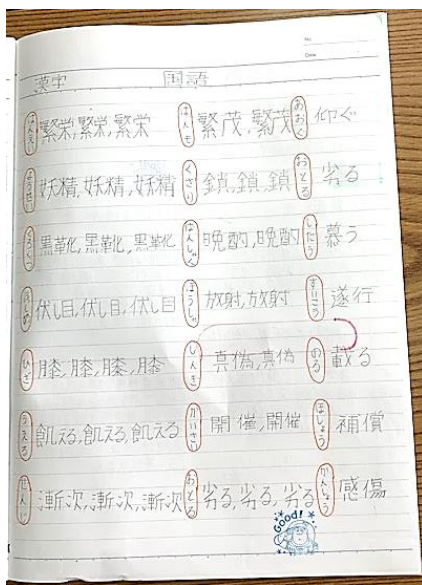 No.
Date
漢字 国語
はんえい 繁栄,繁栄,繁栄 はんも 繁茂,繁茂 あおぐ 仰ぐ
ようせい 妖精,妖精,妖精 くさり 鎖,鎖,鎖 おとる 劣る
黒革化,黒革化,黒革化 ばんしゃく 晩酌,晩酌 したう 慕う
ふしめ 伏し目,伏し目,伏し目 ほうしゃ 放射,放射 すいこう 遂行
ひざ 膝,膝,膝,膝 しんぎ 真偽,真偽 のる 載る
うえる 飢える,飢える,飢える かいさい 開催,開催 ほしょう 補償
ぜんじ 漸次,漸次,漸次 おとる 劣る,劣る,劣る かんしょう 感傷
Good!